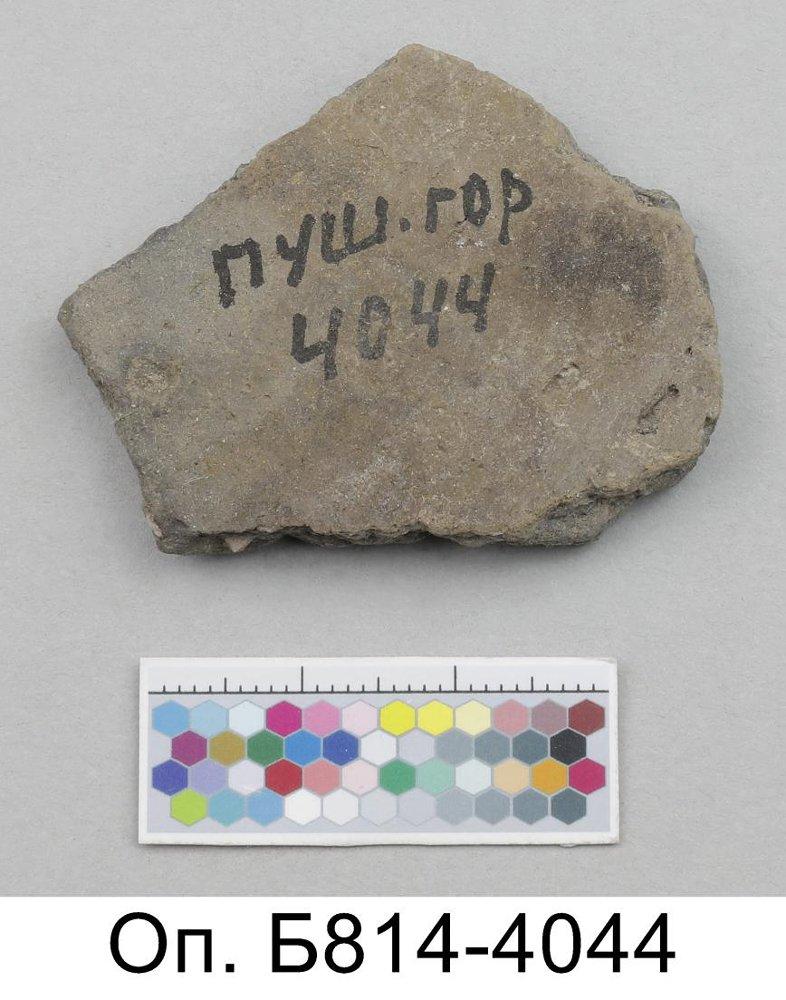 пуш.гор
4044
Оп. Б814-4044